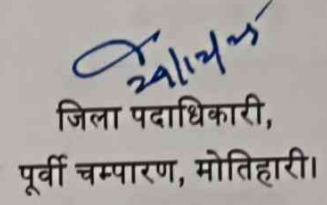 जिला पदाधिकारी,
पूर्वी चम्पारण, मोतिहारी।